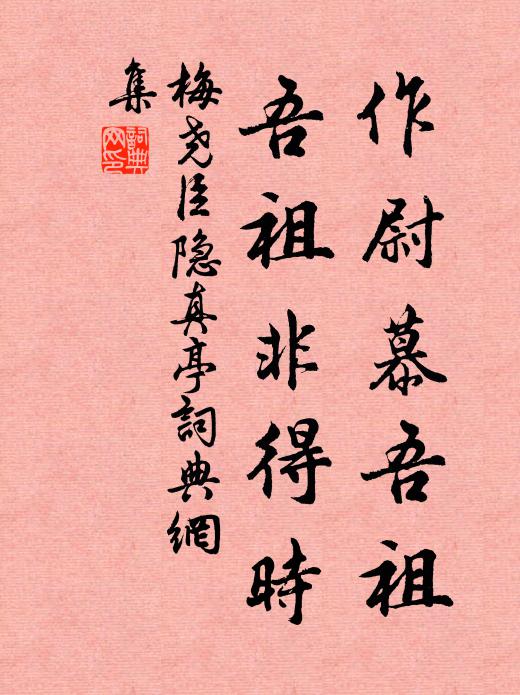 作尉慕吾祖
吾祖非得時
梅尧臣隐真亭詞典網
集
詞典
网印